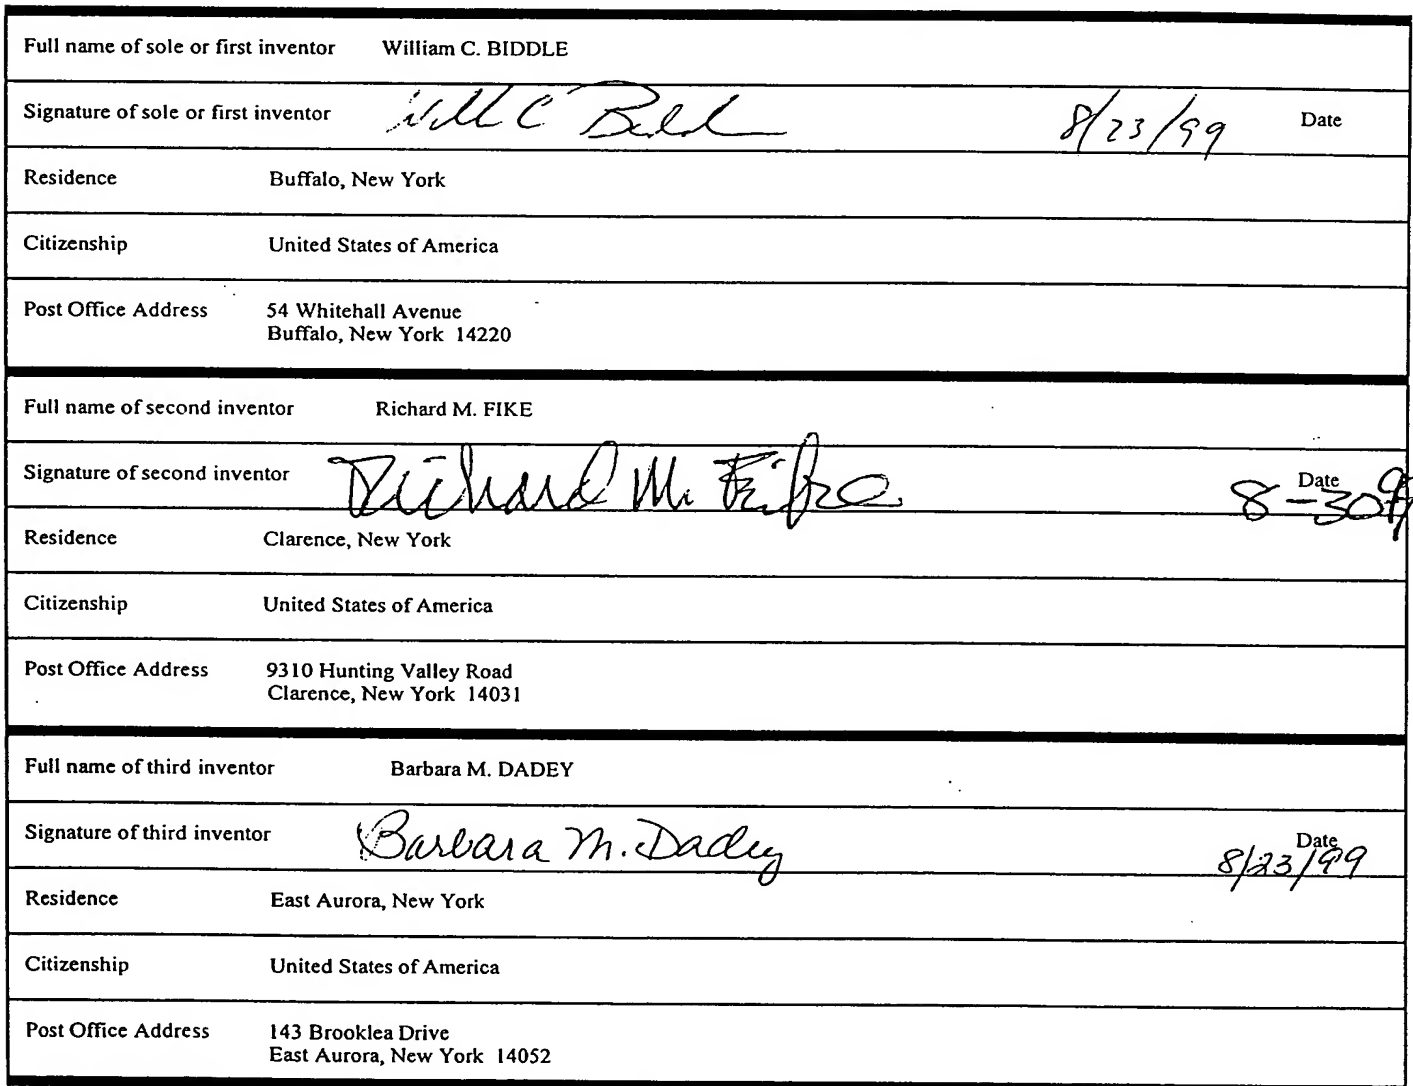 Full name of sole or first inventor William C. BIDDLE
Signature of sole or first inventor Will C Biddle 8/23/99 Date
Residence Buffalo, New York
Citizenship United States of America
Post Office Address 54 Whitehall Avenue
Buffalo, New York 14220
Full name of second inventor Richard M. FIKE
Signature of second inventor Richard M. Fike Date 8-30-9
Residence Clarence, New York
Citizenship United States of America
Post Office Address 9310 Hunting Valley Road
Clarence, New York 14031
Full name of third inventor Barbara M. DADEY
Signature of third inventor Barbara M. Dadey Date 8/23/99
Residence East Aurora, New York
Citizenship United States of America
Post Office Address 143 Brooklea Drive
East Aurora, New York 14052